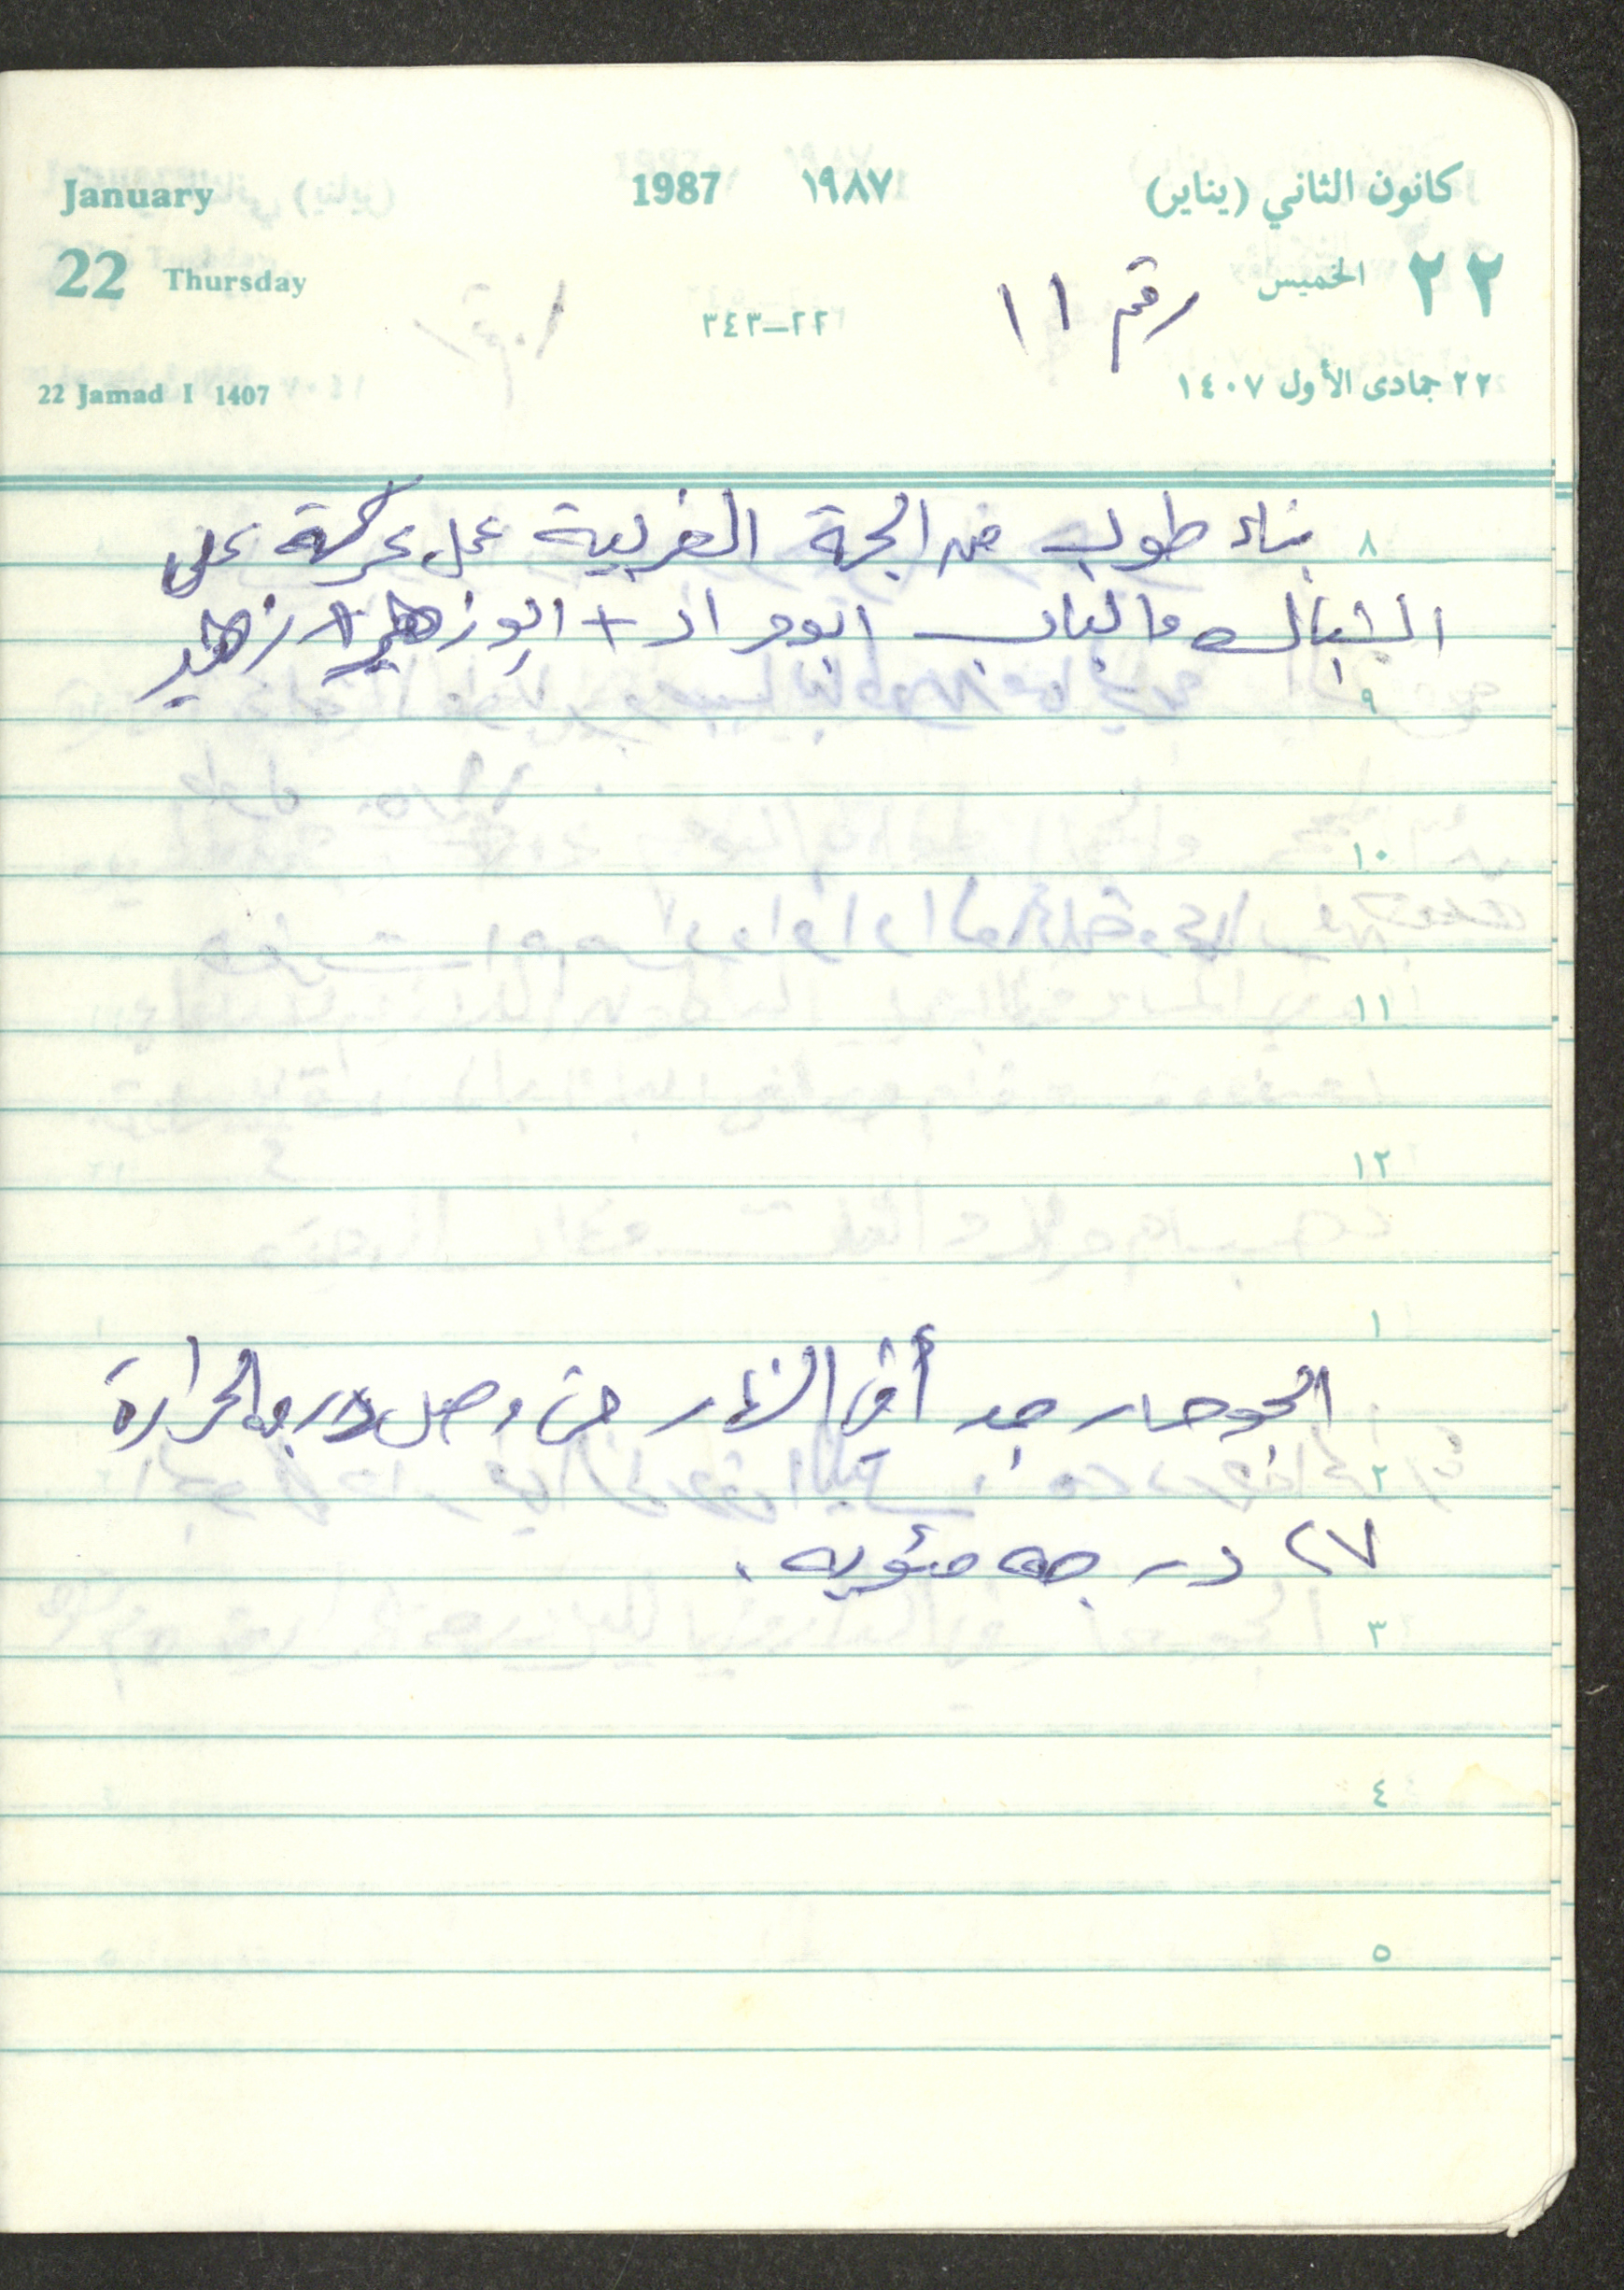 January 1987 ١٩٨٧ كانون الثاني (يناير)
22 Thursday ٢٢ الخميس
رقم ١١
٢٢-٣٤٣
22 Jamad I 1407 ٢٢ جمادى الأول ١٤٠٧
٨ بناء طوب من الجهة الغربية عمل على
الشباك والباب ابو مراد + ابو زهير + زهير
٩
١٠
١١
١٢
١
الجو حار جد النهار حتى وصل درجه الحرارة
٢
٢٧ درجه مئويه .
٣
٤
٥